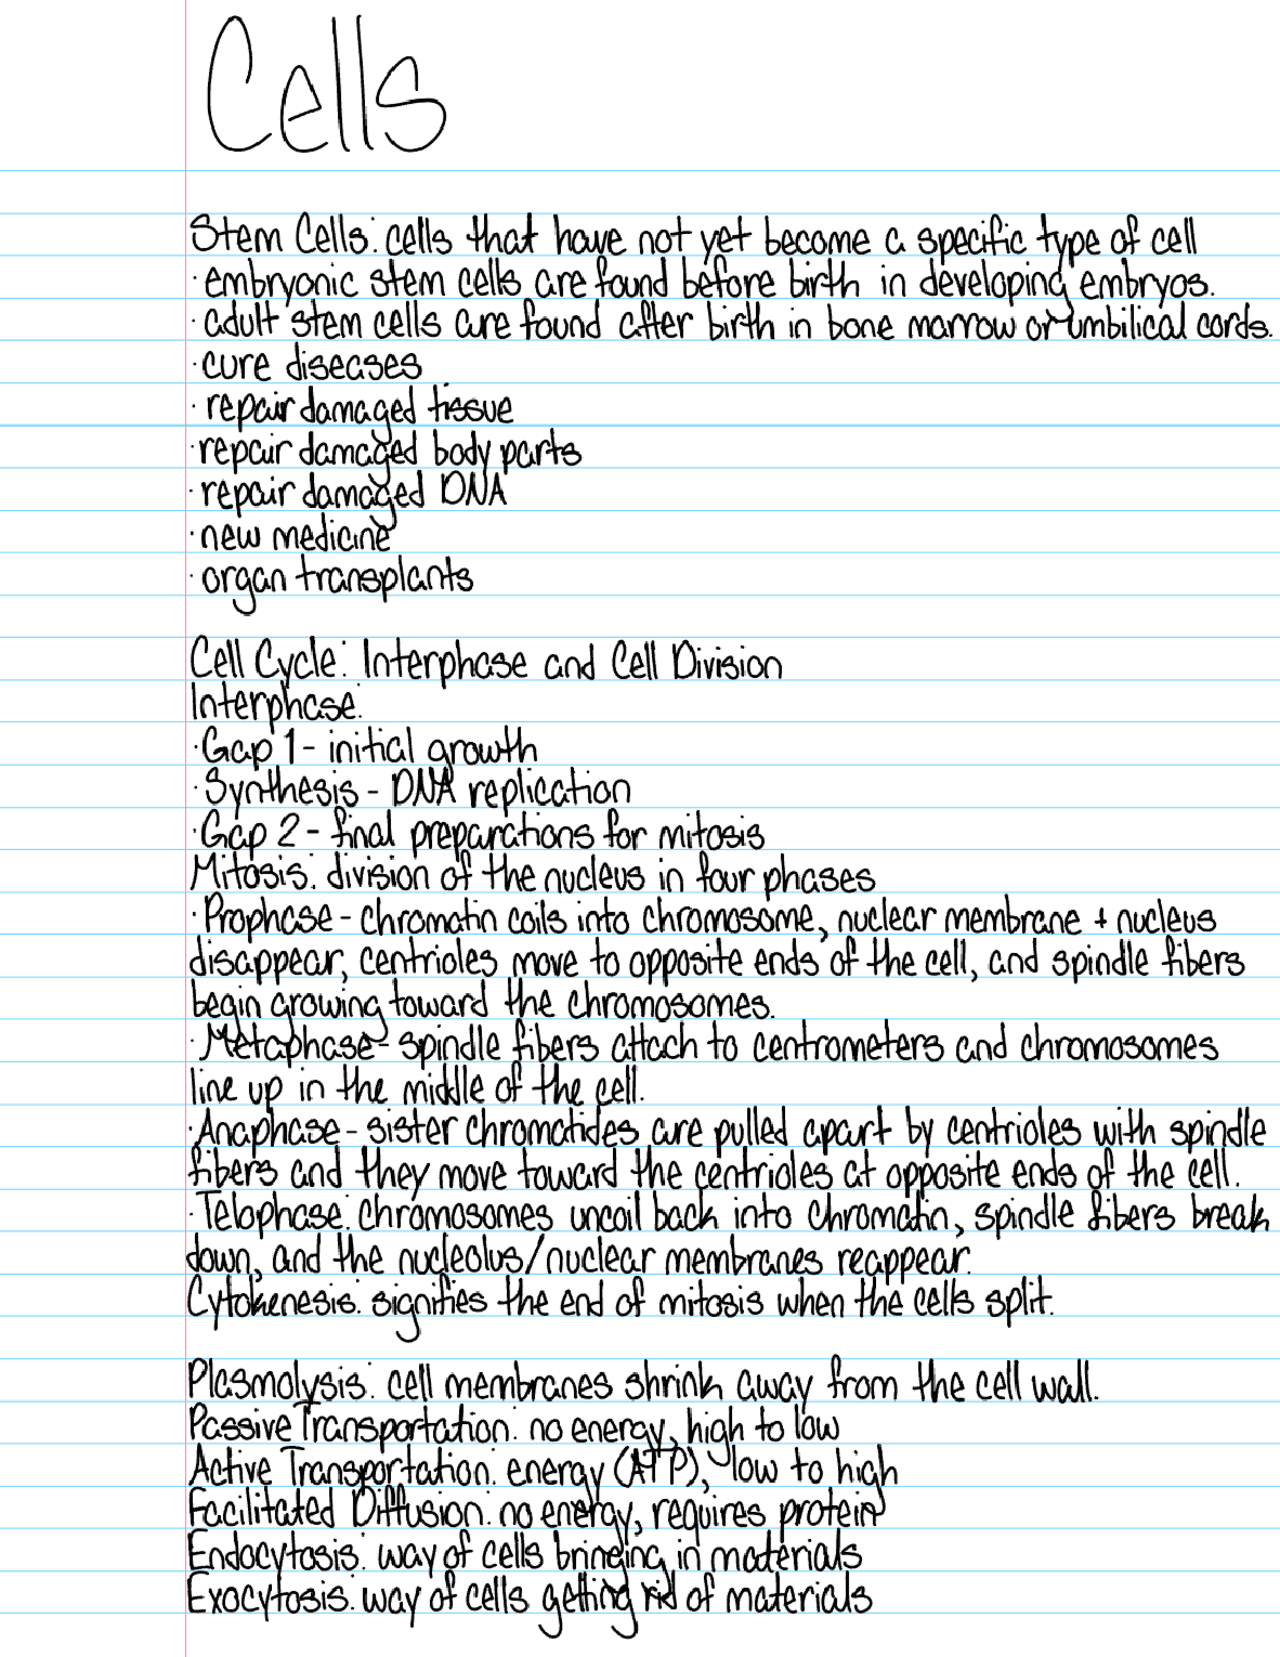 Cells
Stem Cells: cells that have not yet become a specific type of cell
· embryonic stem cells are found before birth in developing embryos.
· adult stem cells are found after birth in bone marrow or umbilical cords.
· cure diseases
· repair damaged tissue
· repair damaged body parts
· repair damaged DNA
· new medicine
· organ transplants
Cell Cycle: Interphase and Cell Division
Interphase:
· Gap 1 - initial growth
· Synthesis - DNA replication
· Gap 2 - final preparations for mitosis
Mitosis: division of the nucleus in four phases
· Prophase - chromatin coils into chromosome, nuclear membrane + nucleus
disappear, centrioles move to opposite ends of the cell, and spindle fibers
begin growing toward the chromosomes.
· Metaphase - spindle fibers attach to centrometers and chromosomes
line up in the middle of the cell.
· Anaphase - sister chromatides are pulled apart by centrioles with spindle
fibers and they move toward the centrioles at opposite ends of the cell.
· Telophase: chromosomes uncoil back into chromatin, spindle fibers break
down, and the nucleolus/nuclear membranes reappear.
Cytokenesis: signifies the end of mitosis when the cells split.
Plasmolysis: cell membranes shrink away from the cell wall.
Passive Transportation: no energy, high to low
Active Transportation: energy (ATP), low to high
Facilitated Diffusion: no energy, requires protein
Endocytosis: way of cells bringing in materials
Exocytosis: way of cells getting rid of materials